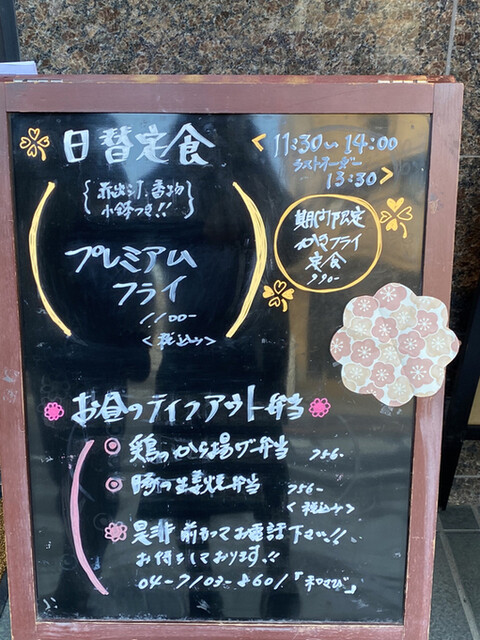 日替定食
<11:30〜14:00
ラストオーダー
13:30>
{赤出汁、香物
小鉢つき!!}
プレミアム
フライ
1,100-
<税込み>
期間限定
かきフライ
定食
990-
お昼のテイクアウト弁当
◎鶏のから揚げ弁当 756-
◎豚の生姜焼弁当 756-
<税込み>
是非 前かってお電話下さい!!
お待ちしております!!
04-7103-8601「和さび」